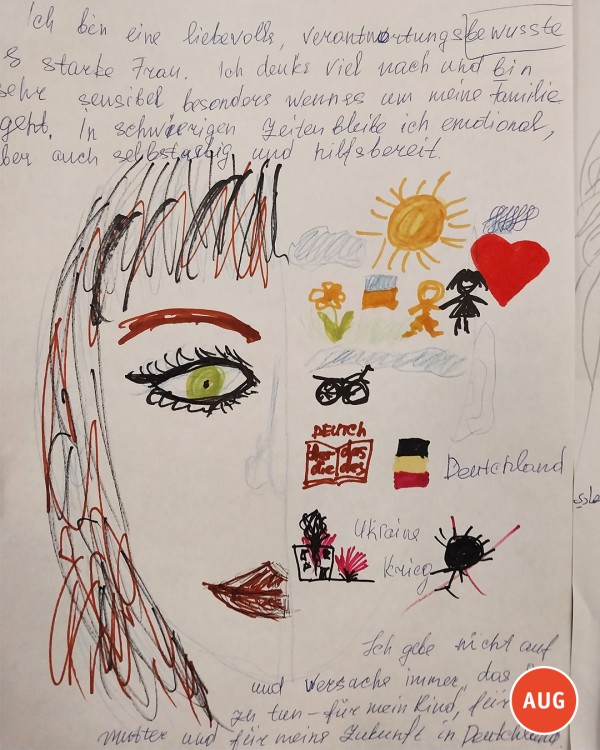 Ich bin eine liebevolle, verantwortungsbewusste
starke Frau. Ich denke viel nach und bin
sehr sensibel besonders wenn es um meine Familie
geht. In schwierigen Zeiten bleibe ich emotional,
aber auch selbstständig und hilfsbereit.
DEUTCH
der das
die des
Deutschland
Ukraine
Krieg
Ich gebe nicht auf
und versache immer, das
zu tun – für mein Kind, für
mutter und für meine Zukunft in Deutschland
AUG